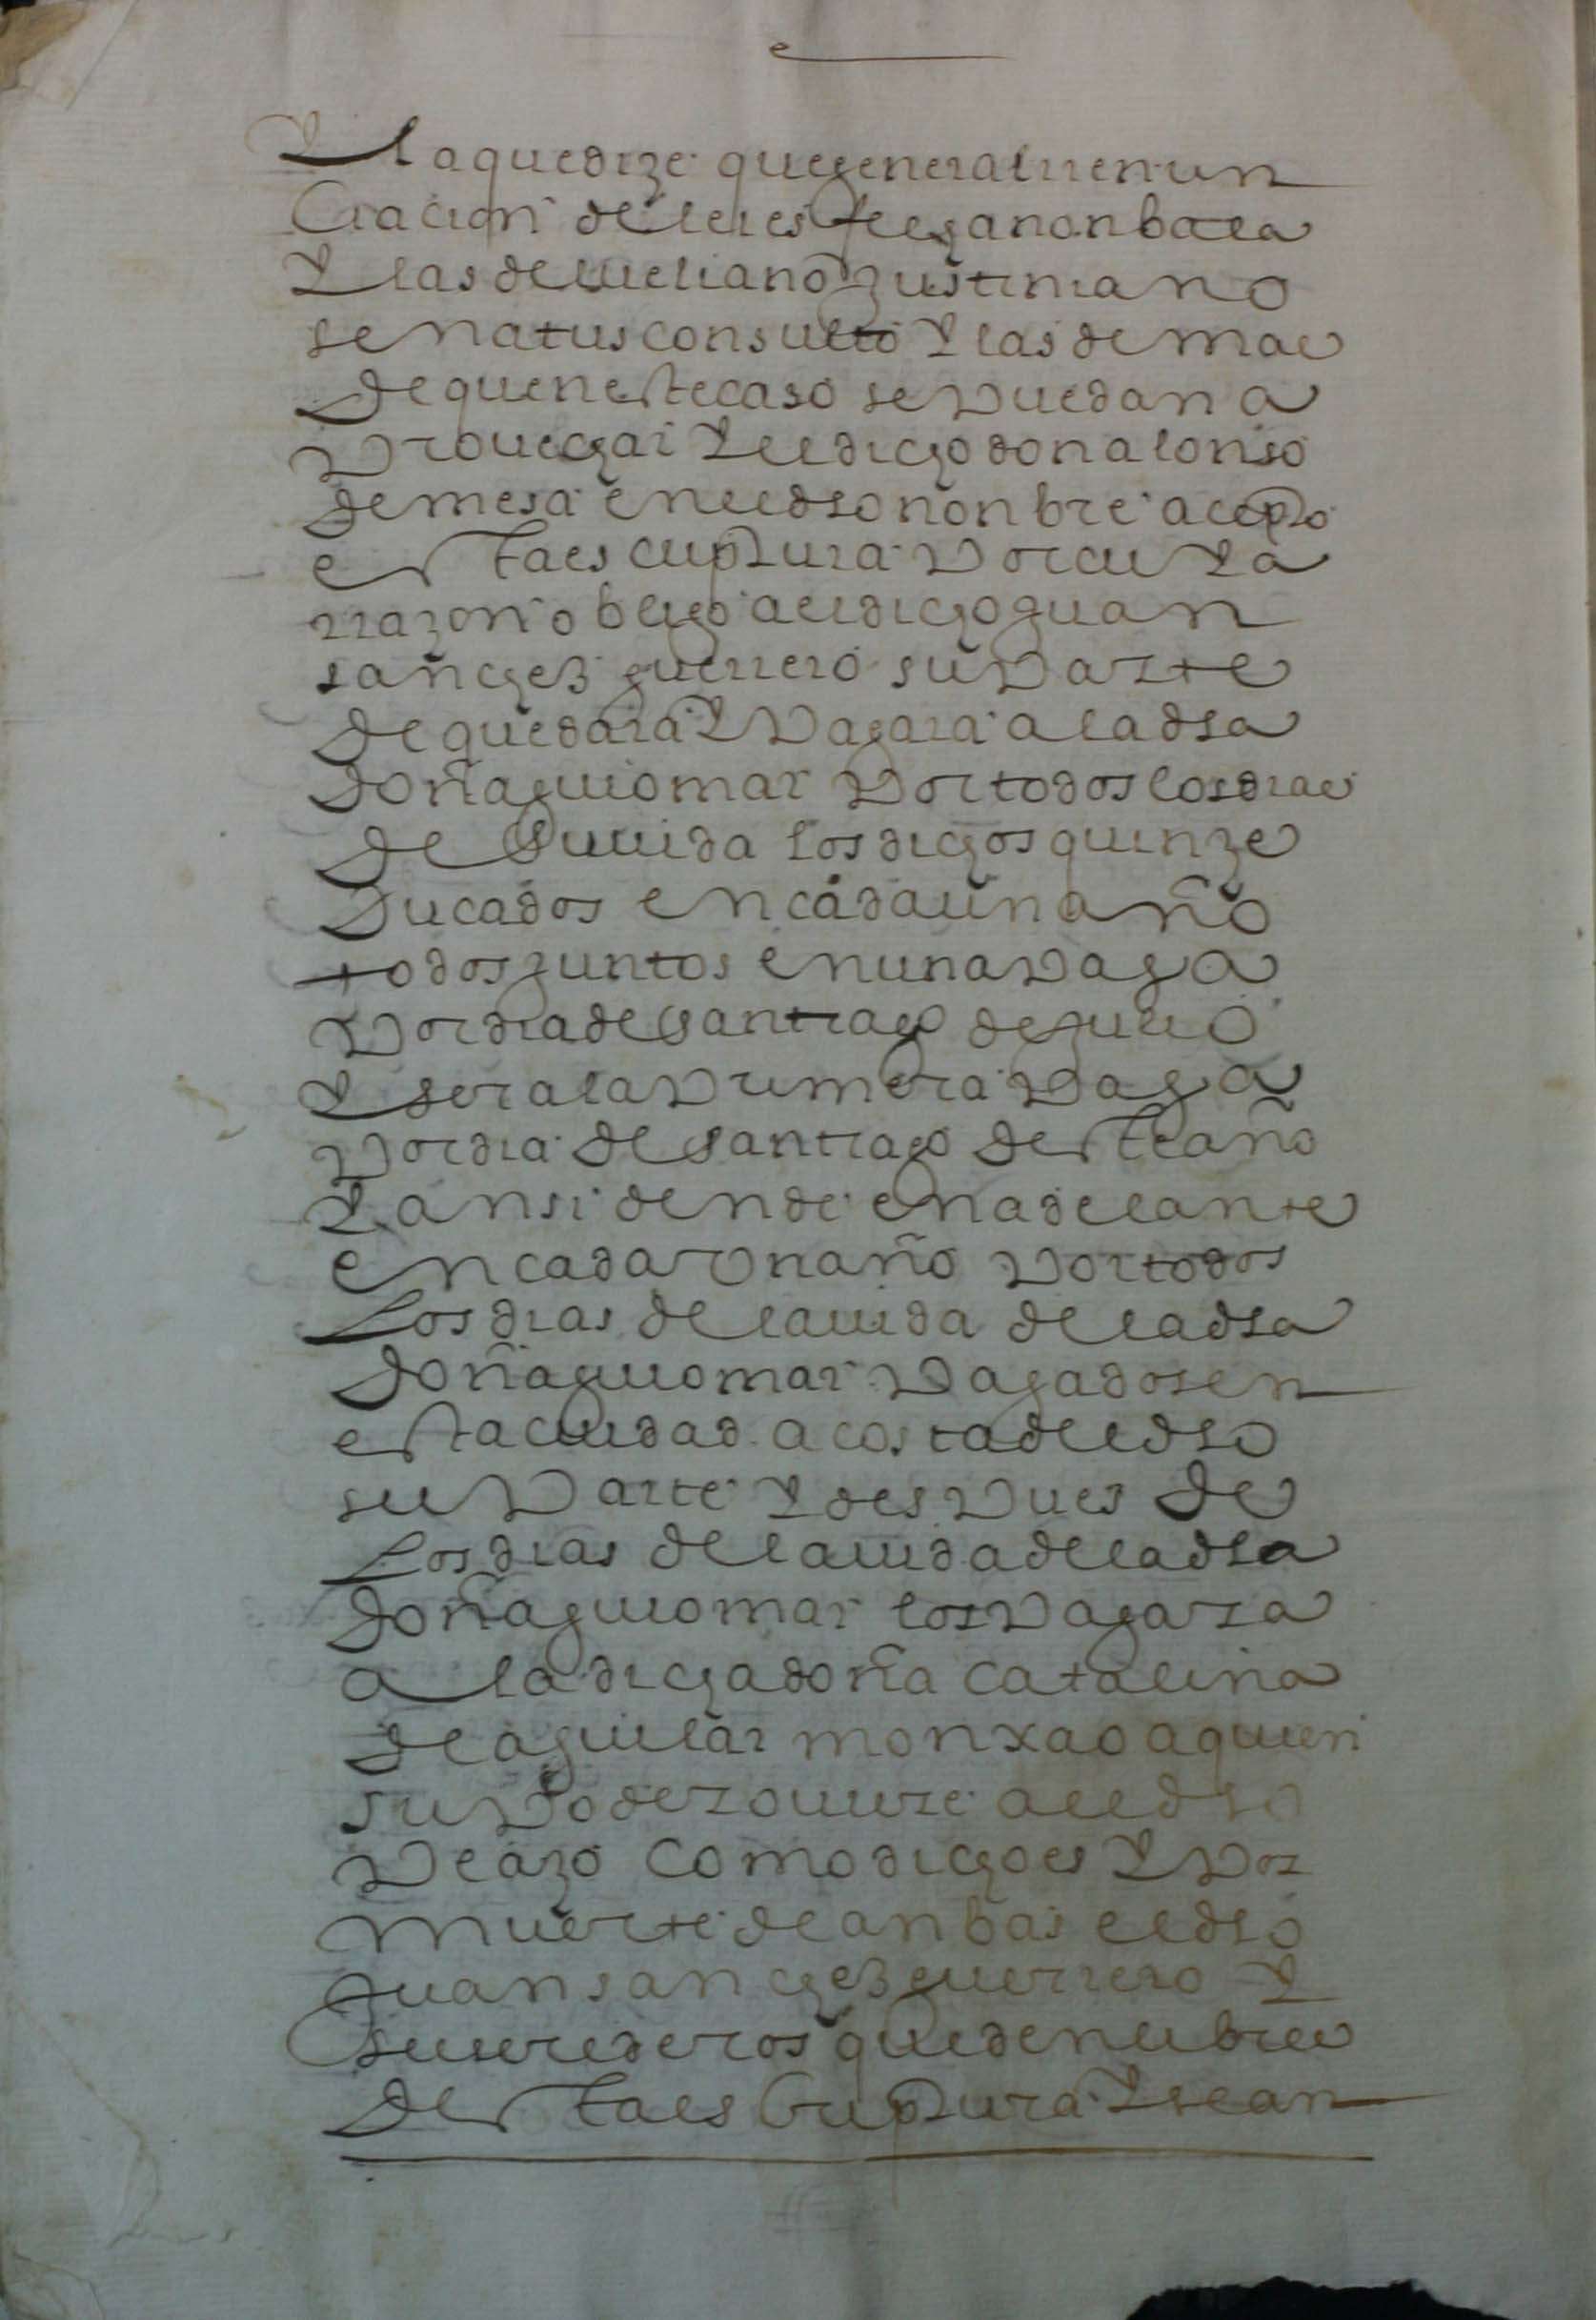 Y la que dize que general rrenun
ciacion de leies fecha non bala
Y las del ueliano Justiniano
senatus consulto Y las demas
de que en este caso se puedan a
prouechar Y el dicho don alonso
de mesa en el dho nonbre acepto
esta escriptura por cuya
rrazon obligo al dicho guan
sanchez guerrero su parte
de que dara Y pagara a la dha
doña guiomar por todos los dias
de su uida los dichos quinze
ducados en cada un año
todos juntos en una paga
por dia de santiago de julio
Y sera la primera paga
por dia de santiago deste año
Y ansi dende en adelante
en cada vn año por todos
los dias de la uida de la dha
doña guiomar pagados en
esta ciudad a costa del dho
su parte Y despues de
los dias de la uida de la dha
doña guiomar los pagara
a la dicha doña catalina
de aguilar monxa o a quien
su poder ouiere al dho
plazo como dicho es Y por
muerte de anbas el dho
juan sanchez guerrero Y
sus erederos queden libres
desta escriptura Y sean